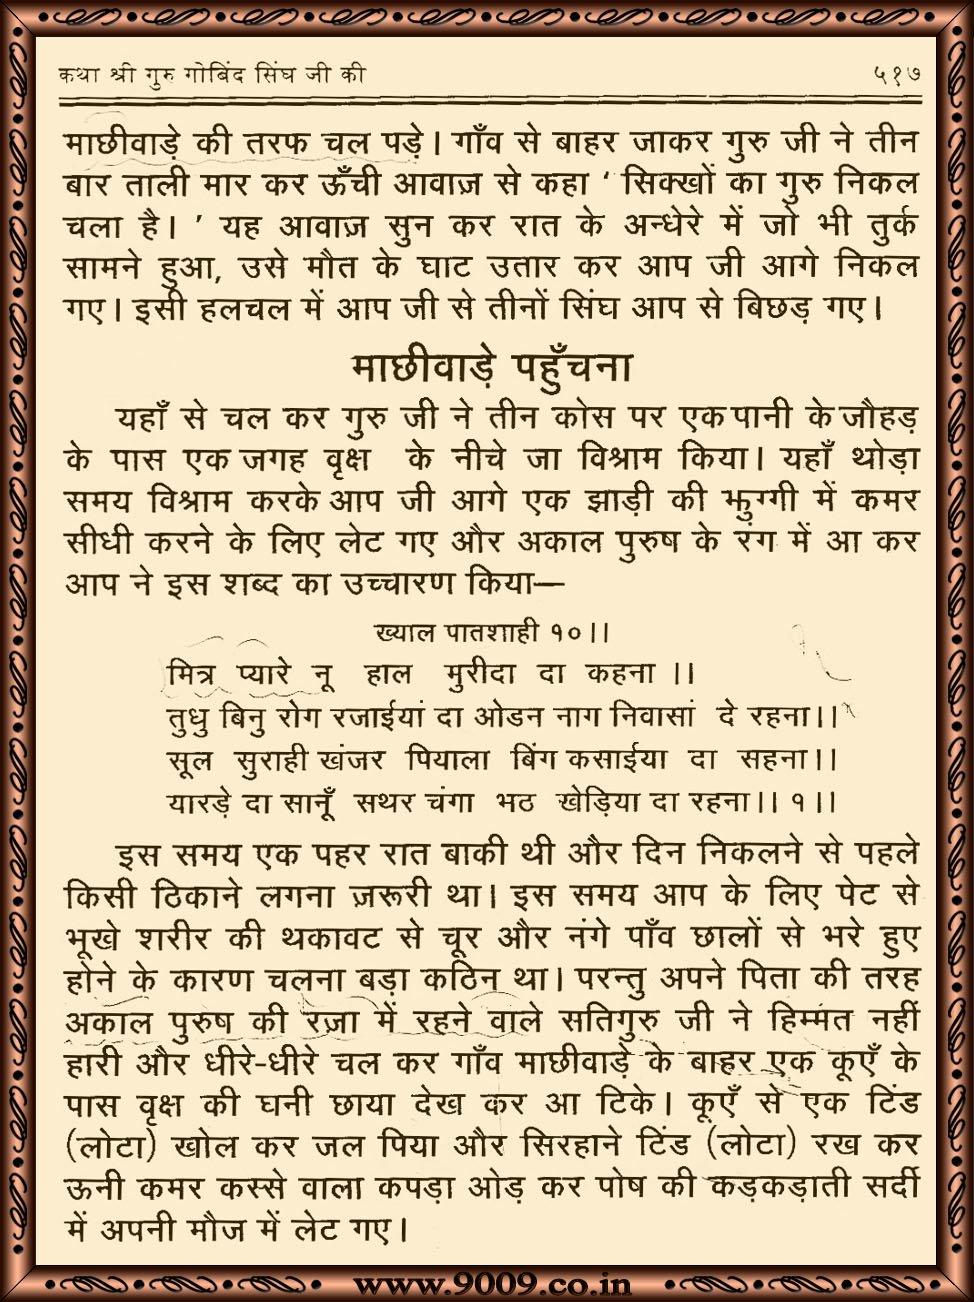 कथा श्री गुरु गोबिंद सिंघ जी की ५१७
माछीवाड़े की तरफ चल पड़े। गाँव से बाहर जाकर गुरु जी ने तीन
बार ताली मार कर ऊँची आवाज़ से कहा ‘ सिक्खों का गुरु निकल
चला है। ’ यह आवाज़ सुन कर रात के अन्धेरे में जो भी तुर्क
सामने हुआ, उसे मौत के घाट उतार कर आप जी आगे निकल
गए। इसी हलचल में आप जी से तीनों सिंघ आप से बिछड़ गए।
माछीवाड़े पहुँचना
यहाँ से चल कर गुरु जी ने तीन कोस पर एक पानी के जौहड़
के पास एक जगह वृक्ष के नीचे जा विश्राम किया। यहाँ थोड़ा
समय विश्राम करके आप जी आगे एक झाड़ी की झुग्गी में कमर
सीधी करने के लिए लेट गए और अकाल पुरुष के रंग में आ कर
आप ने इस शब्द का उच्चारण किया—
ख्याल पातशाही १०।।
मित्र प्यारे नू हाल मुरीदा दा कहना ।।
तुधु बिनु रोग रजाईयां दा ओडन नाग निवासां दे रहना।।
सूल सुराही खंजर पियाला बिंग कसाईया दा सहना।।
यारड़े दा सानूँ सथर चंगा भठ खेड़िया दा रहना।। १।।
इस समय एक पहर रात बाकी थी और दिन निकलने से पहले
किसी ठिकाने लगना ज़रूरी था। इस समय आप के लिए पेट से
भूखे शरीर की थकावट से चूर और नंगे पाँव छालों से भरे हुए
होने के कारण चलना बड़ा कठिन था। परन्तु अपने पिता की तरह
अकाल पुरुष की रज़ा में रहने वाले सतिगुरु जी ने हिम्मत नहीं
हारी और धीरे-धीरे चल कर गाँव माछीवाड़े के बाहर एक कूएँ के
पास वृक्ष की घनी छाया देख कर आ टिके। कूएँ से एक टिंड
(लोटा) खोल कर जल पिया और सिरहाने टिंड (लोटा) रख कर
ऊनी कमर कस्से वाला कपड़ा ओड़ कर पोष की कड़कड़ाती सर्दी
में अपनी मौज में लेट गए।
www.9009.co.in